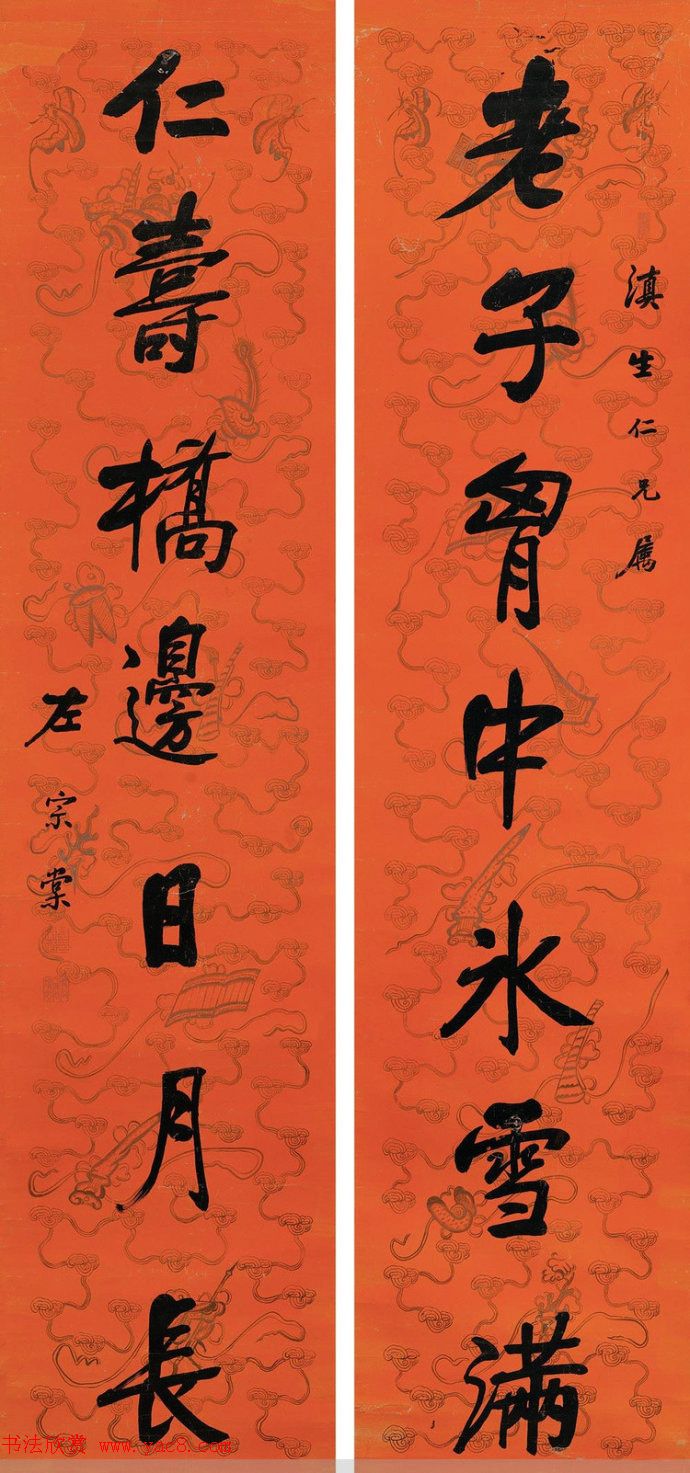 滇生仁兄属
老子胷中氷雪滿
仁壽橋邊日月長
左宗棠
书法欣赏 www.yac8.com